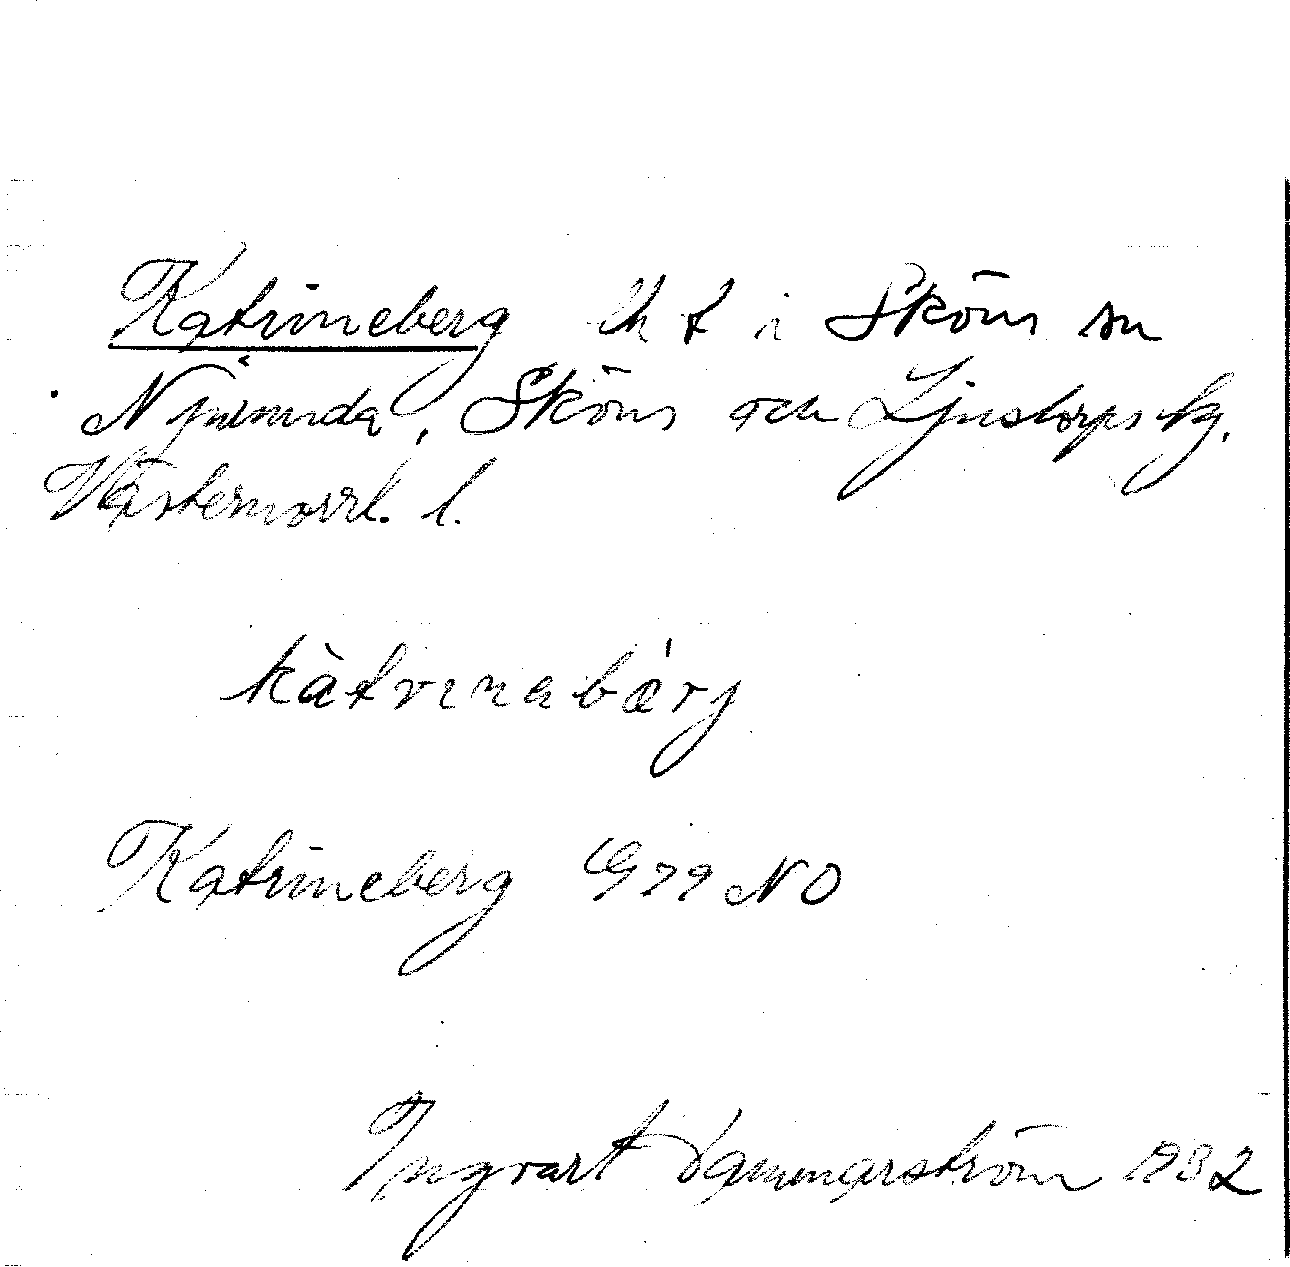 Katrineberg lht i Sköns sn
Njurunda, Sköns och Ljustorps tg.
Västernorrl. l.
kàtrınabǽrj
Katrineberg G79 NO
Ingvart Hammarström 1932